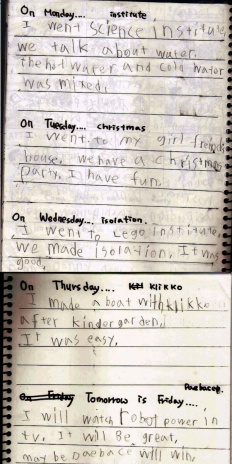 On Monday.... institute.
I went science institute
we talk about water.
the hot water and cold water
was mixed.
On Tuesday.... christmas
I went to my girl friend
house. we have a christmas
party. I have fun.
On Wednesday.... isolation.
I went to Lego institute.
we made isolation. It was
good.
On Thursday.... Klikko
I made a boat with klikko
after kindergarden.
It was easy.
Paebacep.
Tomorrow is Friday....
I will watch robot power in
tv. It will Be great,
may be Daebace will win.